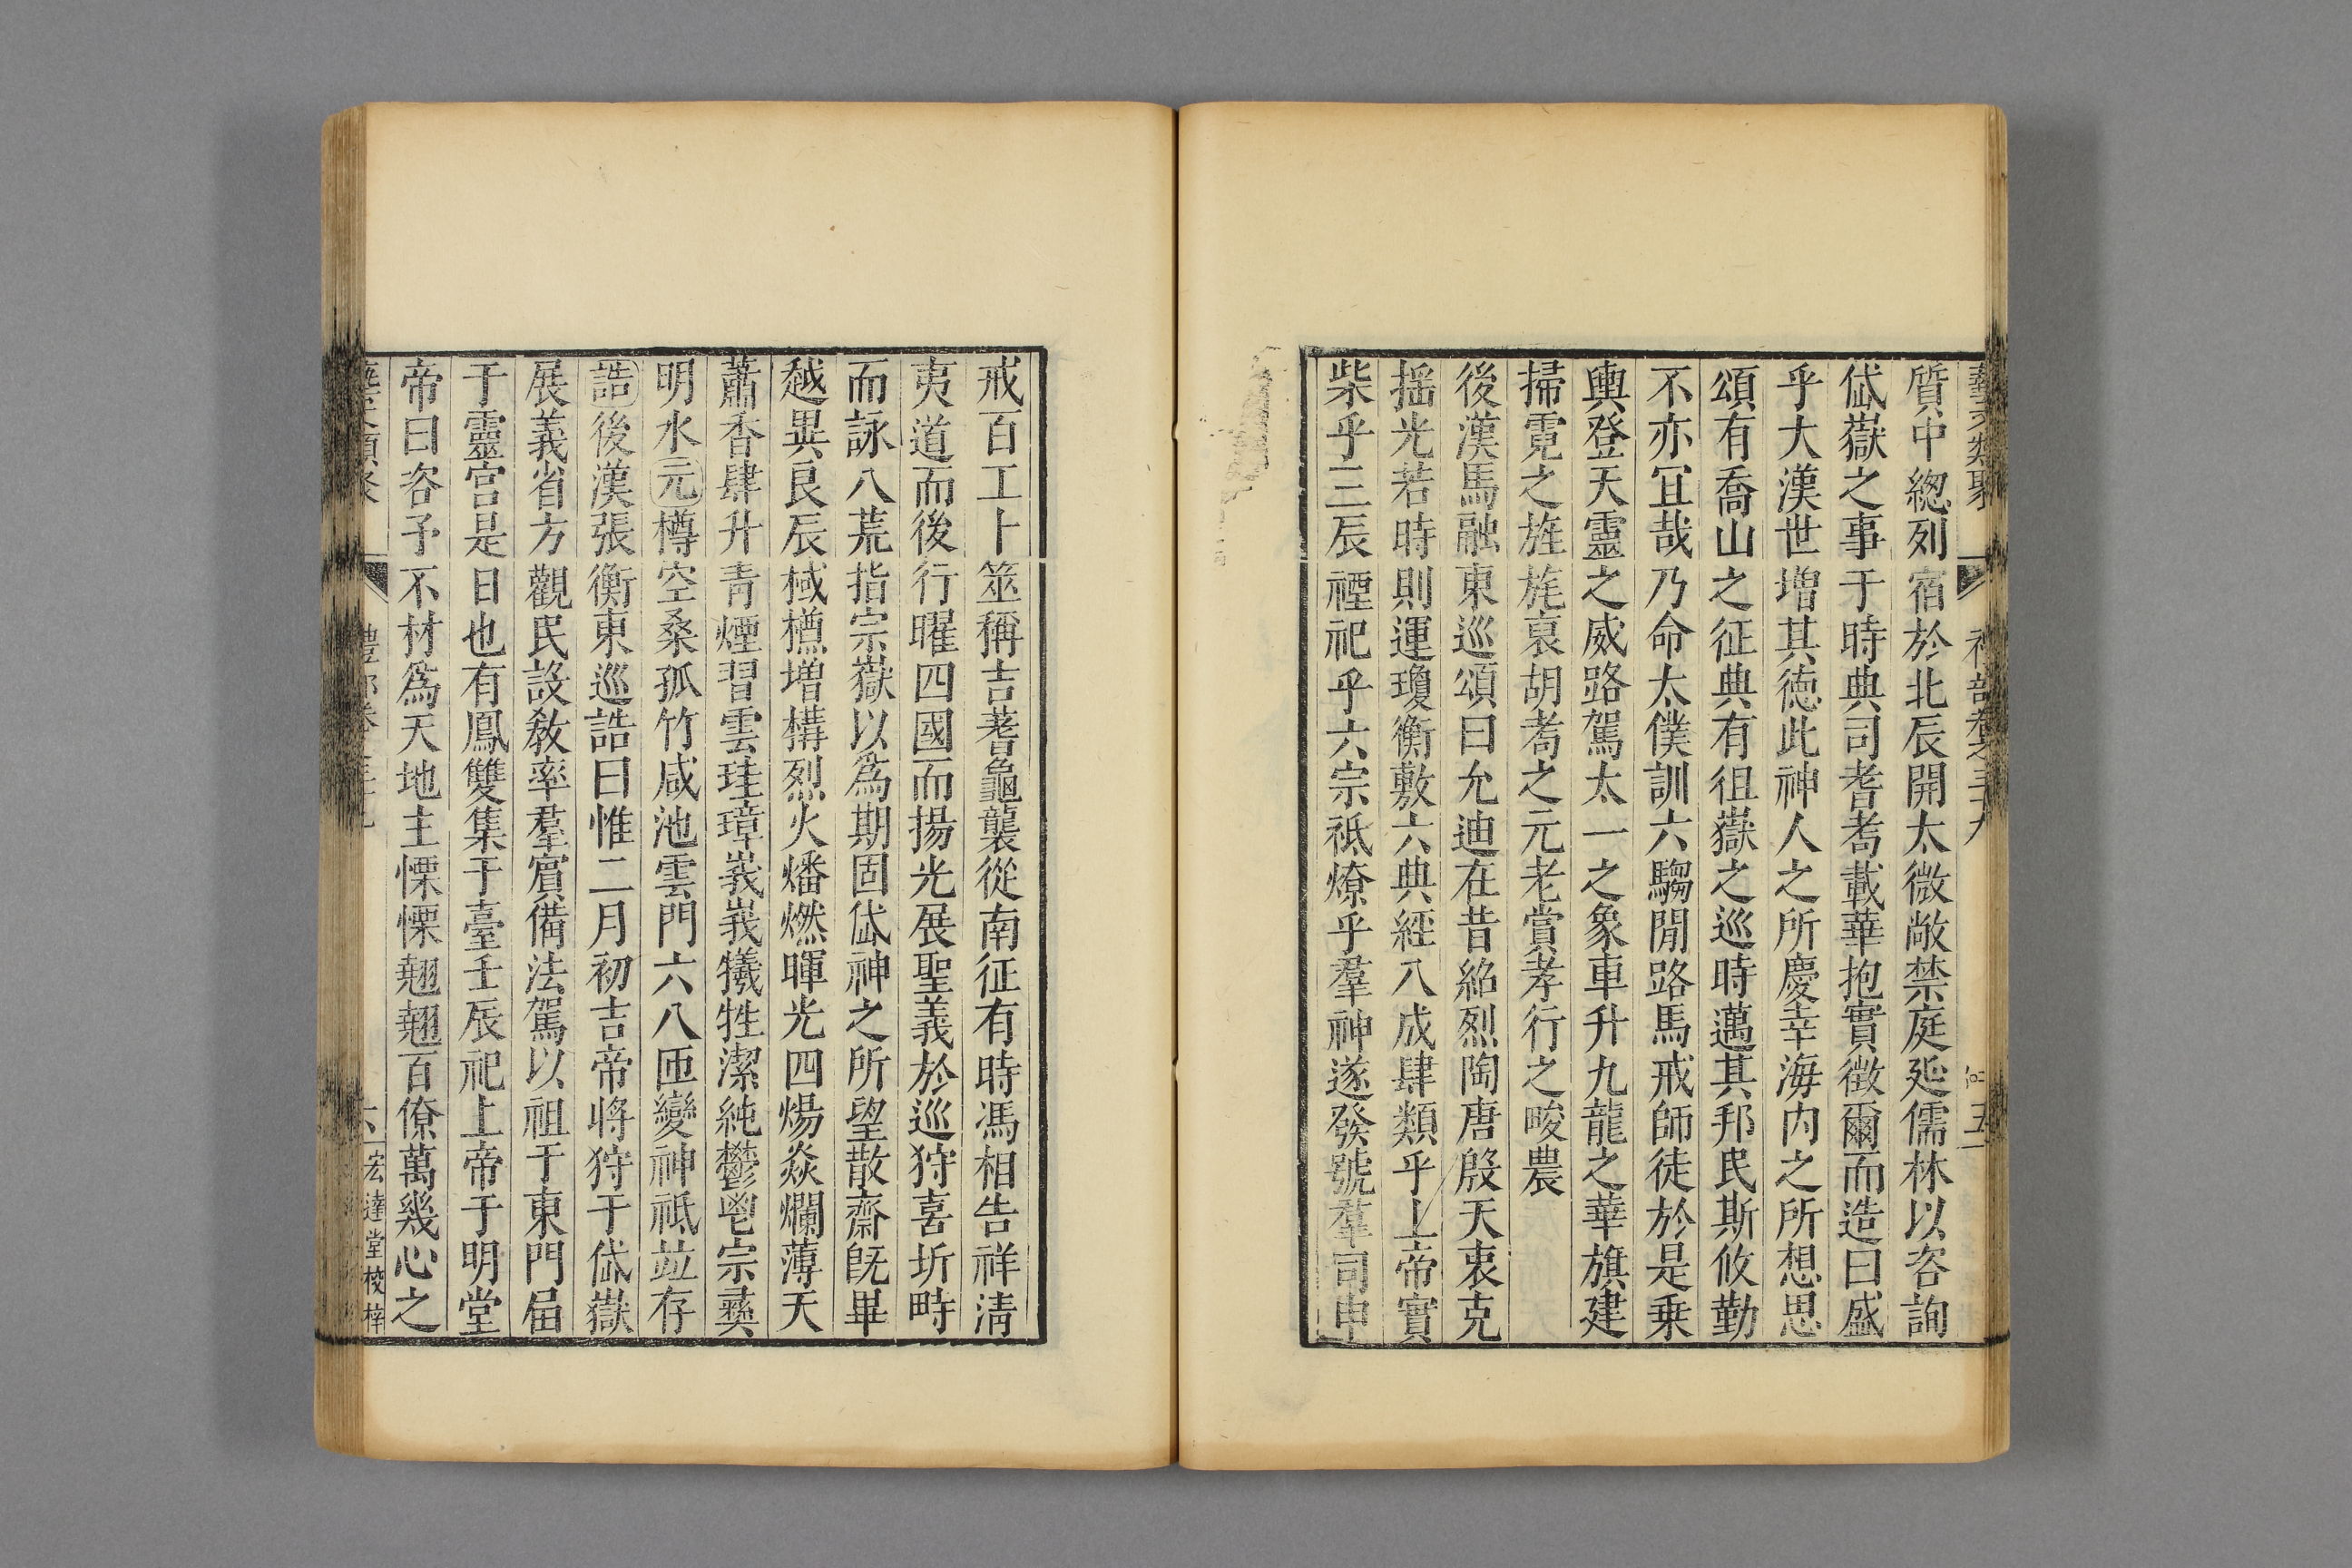 質中總列宿於北辰開太微敞禁庭延儒林以咨詢
岱嶽之事于時典司耆耇載華抱實徵爾而造曰盛
乎大漢世增其德此神人之所慶幸海内之所想思
頌有喬山之征典有徂嶽之巡時邁其邦民斯攸勤
不亦冝哉乃命太僕訓六騶閒路馬戒師徒於是乗
輿登天靈之威路駕太一之象車升九龍之華旗建
掃霓之旌旄裒胡耇之元老賞孝行之畯農
後漢馬融東巡頌曰允迪在昔紹烈陶唐殷天衷克
揺光若時則運瓊衡敷六典經八成肆類乎上帝實
柴乎三辰禋祀乎六宗祗燎乎羣神遂發號羣司申
戒百工卜筮稱吉蓍龜襲從南征有時馮相告祥清
夷道而後行曜四國而揚光展聖義於巡狩喜圻畤
而詠八荒指宗嶽以為期固岱神之所望散齋既畢
越異良辰棫樸増構烈火燔燃暉光四煬焱爛薄天
蕭香肆升青煙習雲珪璋峩峩犧牲潔純鬱鬯宗彞
明水元樽空桑孤竹咸池雲門六八匝變神祗竝存
誥後漢張衡東巡誥曰惟二月初吉帝将狩于岱嶽
展義省方觀民設教率羣賓備法駕以祖于東門届
于靈宫是日也有鳳雙集于臺壬辰祀上帝于明堂
帝曰咨予不材為天地主慄慄翹翹百僚萬幾心之
六 宏達堂校梓